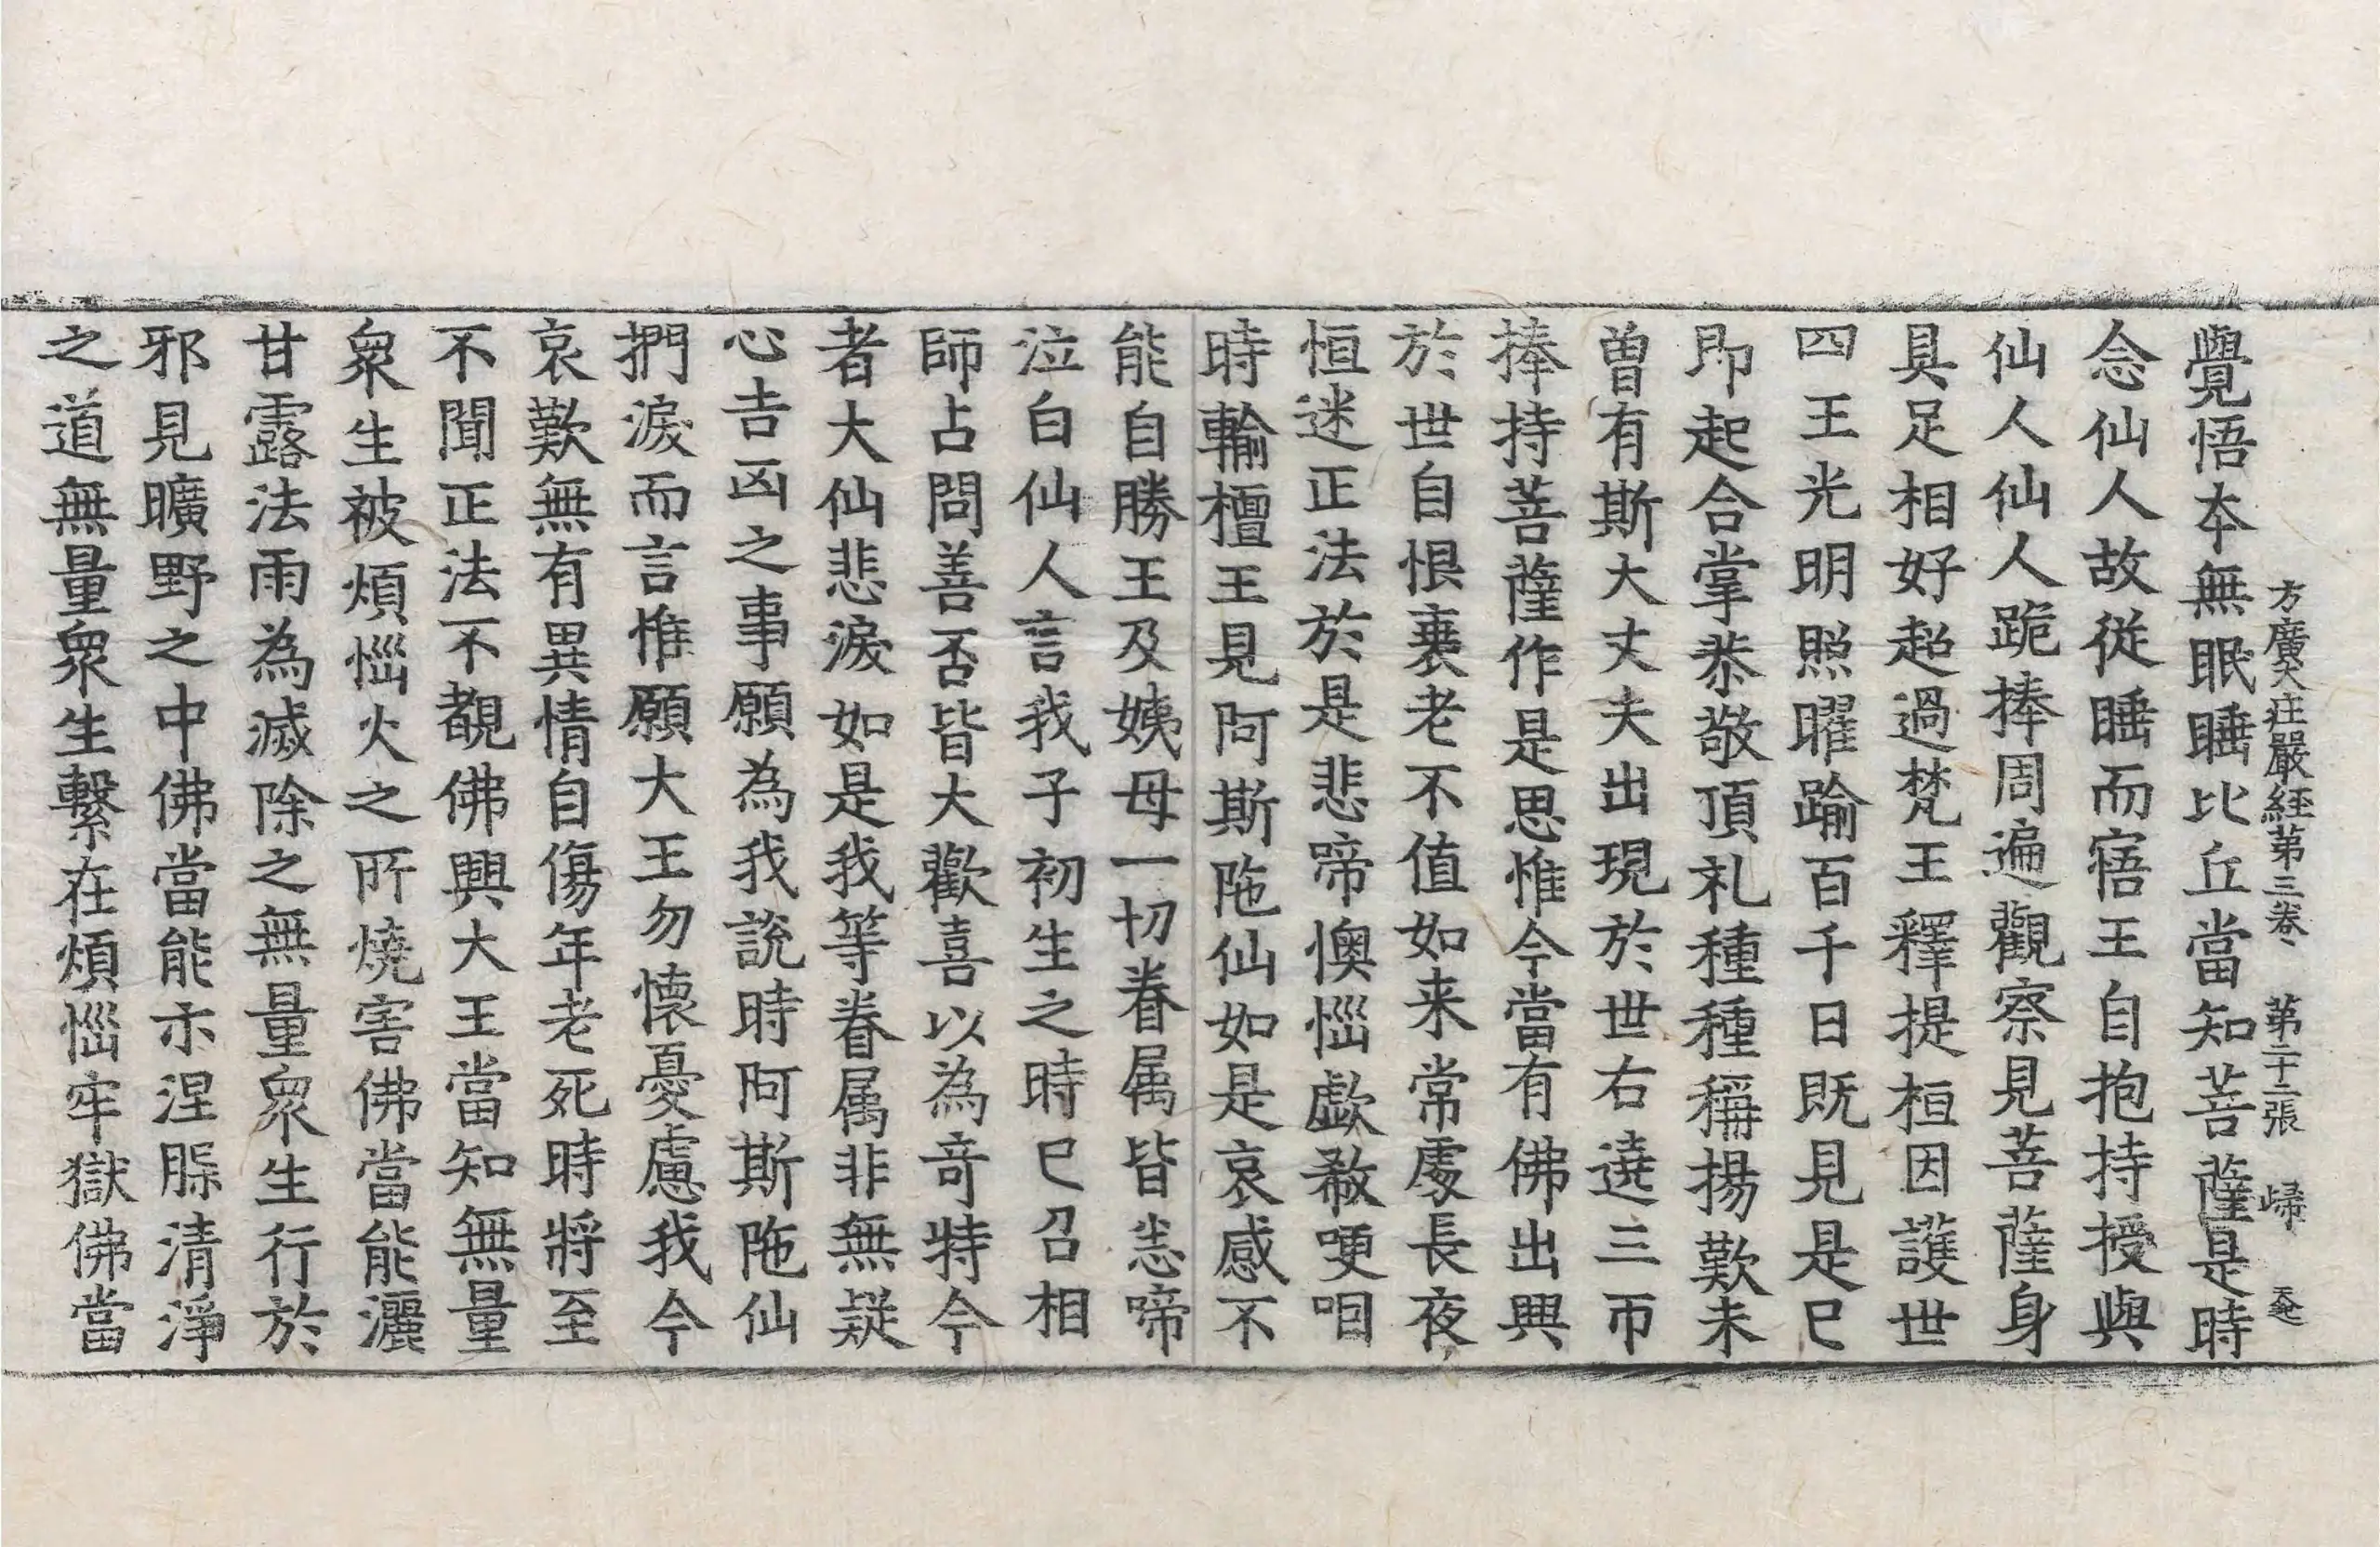 方廣大莊嚴経第三卷 第二十二張 歸
覺悟本無眠睡比丘當知菩薩是時
念仙人故従睡而寤王自抱持授與
仙人仙人跪捧周遍觀察見菩薩身
具足相好超過梵王釋提桓因護世
四王光明照曜踰百千日既見是已
即起合掌恭敬頂礼種種稱揚歎未
曽有斯大丈夫出現於世右遶三帀
捧持菩薩作是思惟今當有佛出興
於世自恨衰老不值如来常處長夜
恒迷正法於是悲啼懊惱歔欷哽咽
時輸檀王見阿斯陁仙如是哀感不
能自勝王及姨母一切眷属皆悉啼
泣白仙人言我子初生之時已召相
師占問善否皆大歡喜以為竒特今
者大仙悲淚如是我等眷属非無疑
心吉凶之事願為我說時阿斯陁仙
捫淚而言惟願大王勿懷憂慮我今
哀歎無有異情自傷年老死時將至
不聞正法不覩佛興大王當知無量
衆生被煩惱火之所燒害佛當能灑
甘露法雨為滅除之無量衆生行於
邪見曠野之中佛當能示涅槃清淨
之道無量衆生繫在煩惱牢獄佛當